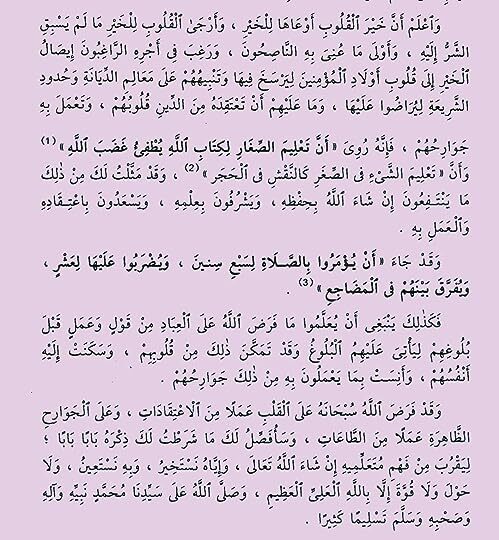 وَٱعْلَمْ أَنَّ خَيْرَ ٱلْقُلُوبِ أَوْعَاهَا لِلْخَيْرِ ، وَأَرْجَىٰ ٱلْقُلُوبِ لِلْخَيْرِ مَا لَمْ يَسْبِقِ
الشَّرُّ إِلَيْهِ ، وَأَوْلَى مَا عُنِىَ بِهِ النَّاصِحُونَ ، وَرَغِبَ فِى أَجْرِهِ الرَّاغِبُونَ إِيصَالُ
ٱلْخَيْرِ إِلَىٰ قُلُوبِ أَوْلَادِ ٱلْمُؤْمِنِينَ لِيَرْسَخَ فِيهَا وَتَنْبِيهُهُمْ عَلَىٰ مَعَالِمِ الدِّيَانَةِ وَحُدُودِ
الشَّرِيعَةِ لِيُرَاضُوا عَلَيْهَا ، وَمَا عَلَيْهِمْ أَنْ تَعْتَقِدَهُ مِنَ الدِّينِ قُلُوبُهُمْ ، وَتَعْمَلَ بِهِ
جَوَارِحُهُمْ ، فَإِنَّهُ رُوِىَ « أَنَّ تَعْلِيمَ الصِّغَارِ لِكِتَابِ ٱللَّهِ يُطْفِئُ غَضَبَ ٱللَّهِ » (1)
وَأَنَّ « تَعْلِيمَ الشَّىْءِ فِى الصِّغَرِ كَالنَّقْشِ فِى ٱلْحَجَرِ » (2) ، وَقَدْ مَثَّلْتُ لَكَ مِنْ ذٰلِكَ
مَا يَنْتَفِعُونَ إِنْ شَاءَ ٱللَّهُ بِحِفْظِهِ ، وَيَشْرُفُونَ بِعِلْمِهِ ، وَيَسْعَدُونَ بِاعْتِقَادِهِ
وَٱلْعَمَلِ بِهِ .
وَقَدْ جَاءَ « أَنْ يُؤْمَرُوا بِالصَّلَاةِ لِسَبْعِ سِنِينَ ، وَيُضْرَبُوا عَلَيْهَا لِعَشْرٍ ،
وَيُفَرَّقَ بَيْنَهُمْ فِى ٱلْمَضَاجِعِ » (3) .
فَكَذٰلِكَ يَنْبَغِى أَنْ يُعَلَّمُوا مَا فَرَضَ ٱللَّهُ عَلَىٰ ٱلْعِبَادِ مِنْ قَوْلٍ وَعَمَلٍ قَبْلَ
بُلُوغِهِمْ لِيَأْتِىَ عَلَيْهِمُ ٱلْبُلُوغُ وَقَدْ تَمَكَّنَ ذٰلِكَ مِنْ قُلُوبِهِمْ ، وَسَكَنَتْ إِلَيْهِ
أَنْفُسُهُمْ ، وَأَنِسَتْ بِمَا يَعْمَلُونَ بِهِ مِنْ ذٰلِكَ جَوَارِحُهُمْ .
وَقَدْ فَرَضَ ٱللَّهُ سُبْحَانَهُ عَلَىٰ ٱلْقَلْبِ عَمَلًا مِنَ ٱلْاعْتِقَادَاتِ ، وَعَلَىٰ ٱلْجَوَارِحِ
الظَّاهِرَةِ عَمَلًا مِنَ الطَّاعَاتِ ، وَسَأُفَصِّلُ لَكَ مَا شَرَطْتُ لَكَ ذِكْرَهُ بَابًا بَابًا ؛
لِيَقْرُبَ مِنْ فَهْمِ مُتَعَلِّمِيهِ إِنْ شَاءَ ٱللَّهُ تَعَالَىٰ ، وَإِيَّاهُ نَسْتَخِيرُ ، وَبِهِ نَسْتَعِينُ ، وَلَا
حَوْلَ وَلَا قُوَّةَ إِلَّا بِٱللَّهِ ٱلْعَلِىِّ ٱلْعَظِيمِ ، وَصَلَّىٰ ٱللَّهُ عَلَىٰ سَيِّدِنَا مُحَمَّدٍ نَبِيِّهِ وَآلِهِ
وَصَحْبِهِ وَسَلَّمَ تَسْلِيمًا كَثِيرًا .